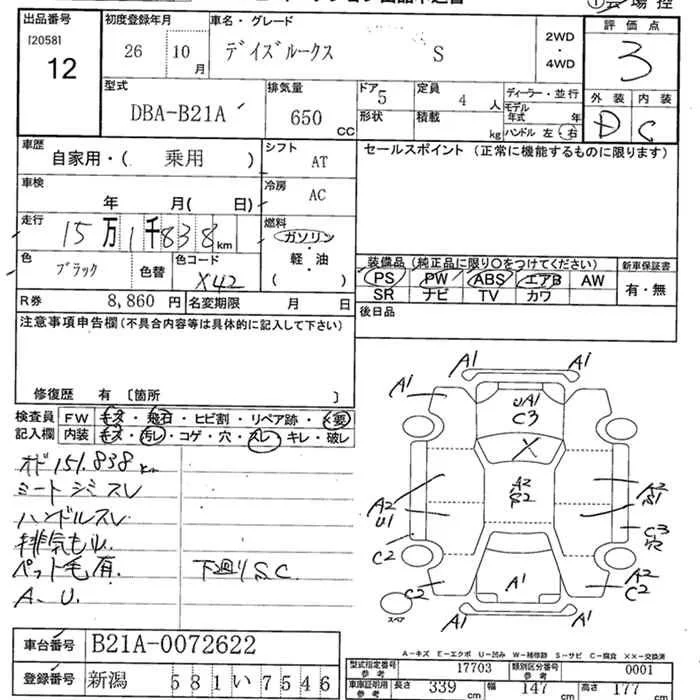 出品番号 初度登録年月 車名・グレード ①会場控
[2058] 26 10 月 デイズルークス S 2WD ・ 4WD 評価点
12 3
型式 排気量 ドア 定員 ディーラー・並行 外装 内装
DBA-B21A 650 CC 5 4 人 モデル年式 年 D C
形状 積載 kg ハンドル 左 右
車歴 自家用・( 乗用 ) シフト AT セールスポイント (正常に機能するものに限ります)
車検 年 月( 日) 冷房 AC
走行 15万1千838km 燃料 ガソリン
軽・油
( )
色 ブラック 色替 色コード X42
装備品 (純正品に限り○をつけてください) 新車保証書
PS PW ABS エアB AW 有・無
SR ナビ TV カワ
R券 8,860 円 名変期限 月 日
後日品
注意事項申告欄(不具合内容等は具体的に記入して下さい)
修復歴 有 [箇所 ]
検査員 FW キズ・飛石・ヒビ割・リペア跡・×要
記入欄 内装 キズ・汚レ・コゲ・穴・スレ・キレ・破レ
オド151.838km
シミ スレ
ハンドルスレ
排気もレ
ペット毛有. 下廻りS.C.
A.U.
A1 A1
A1 A1
UA1
C3
X
A2
S2
A2
U1
C2
A2
S1
C3
穴
C2 A1 A2
C2
A1 A1
スペア
A-キズ E-エクボ U-凹み W-補修跡 S-サビ C-腐食 ××-交換済
車台番号 B21A-0072622
登録番号 新潟 581い7546
型式指定番号 参考 17703 類別区分番号 参考 0001
車庫証明用 参考 長さ 339 cm 幅 147 cm 高さ 177 cm